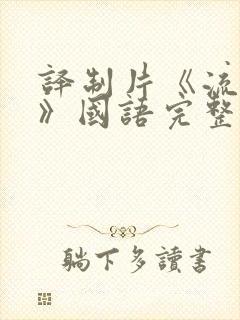 譯制片《流
》國語完整
躺下多讀書